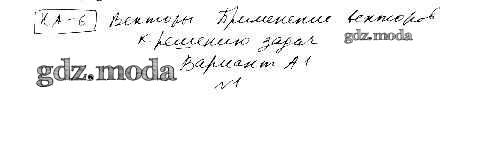 КА-6 Векторы Применение векторов
к решению задач
gdz.moda
gdz.moda
Вариант А1
№1